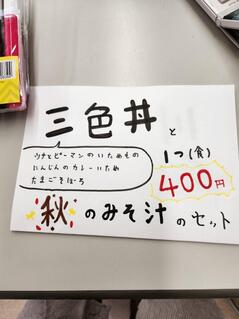 三色丼と
ツナとピーマンのいためもの
にんじんのカレーいため
たまごそぼろ
1つ(食)
400円
秋のみそ汁のセット